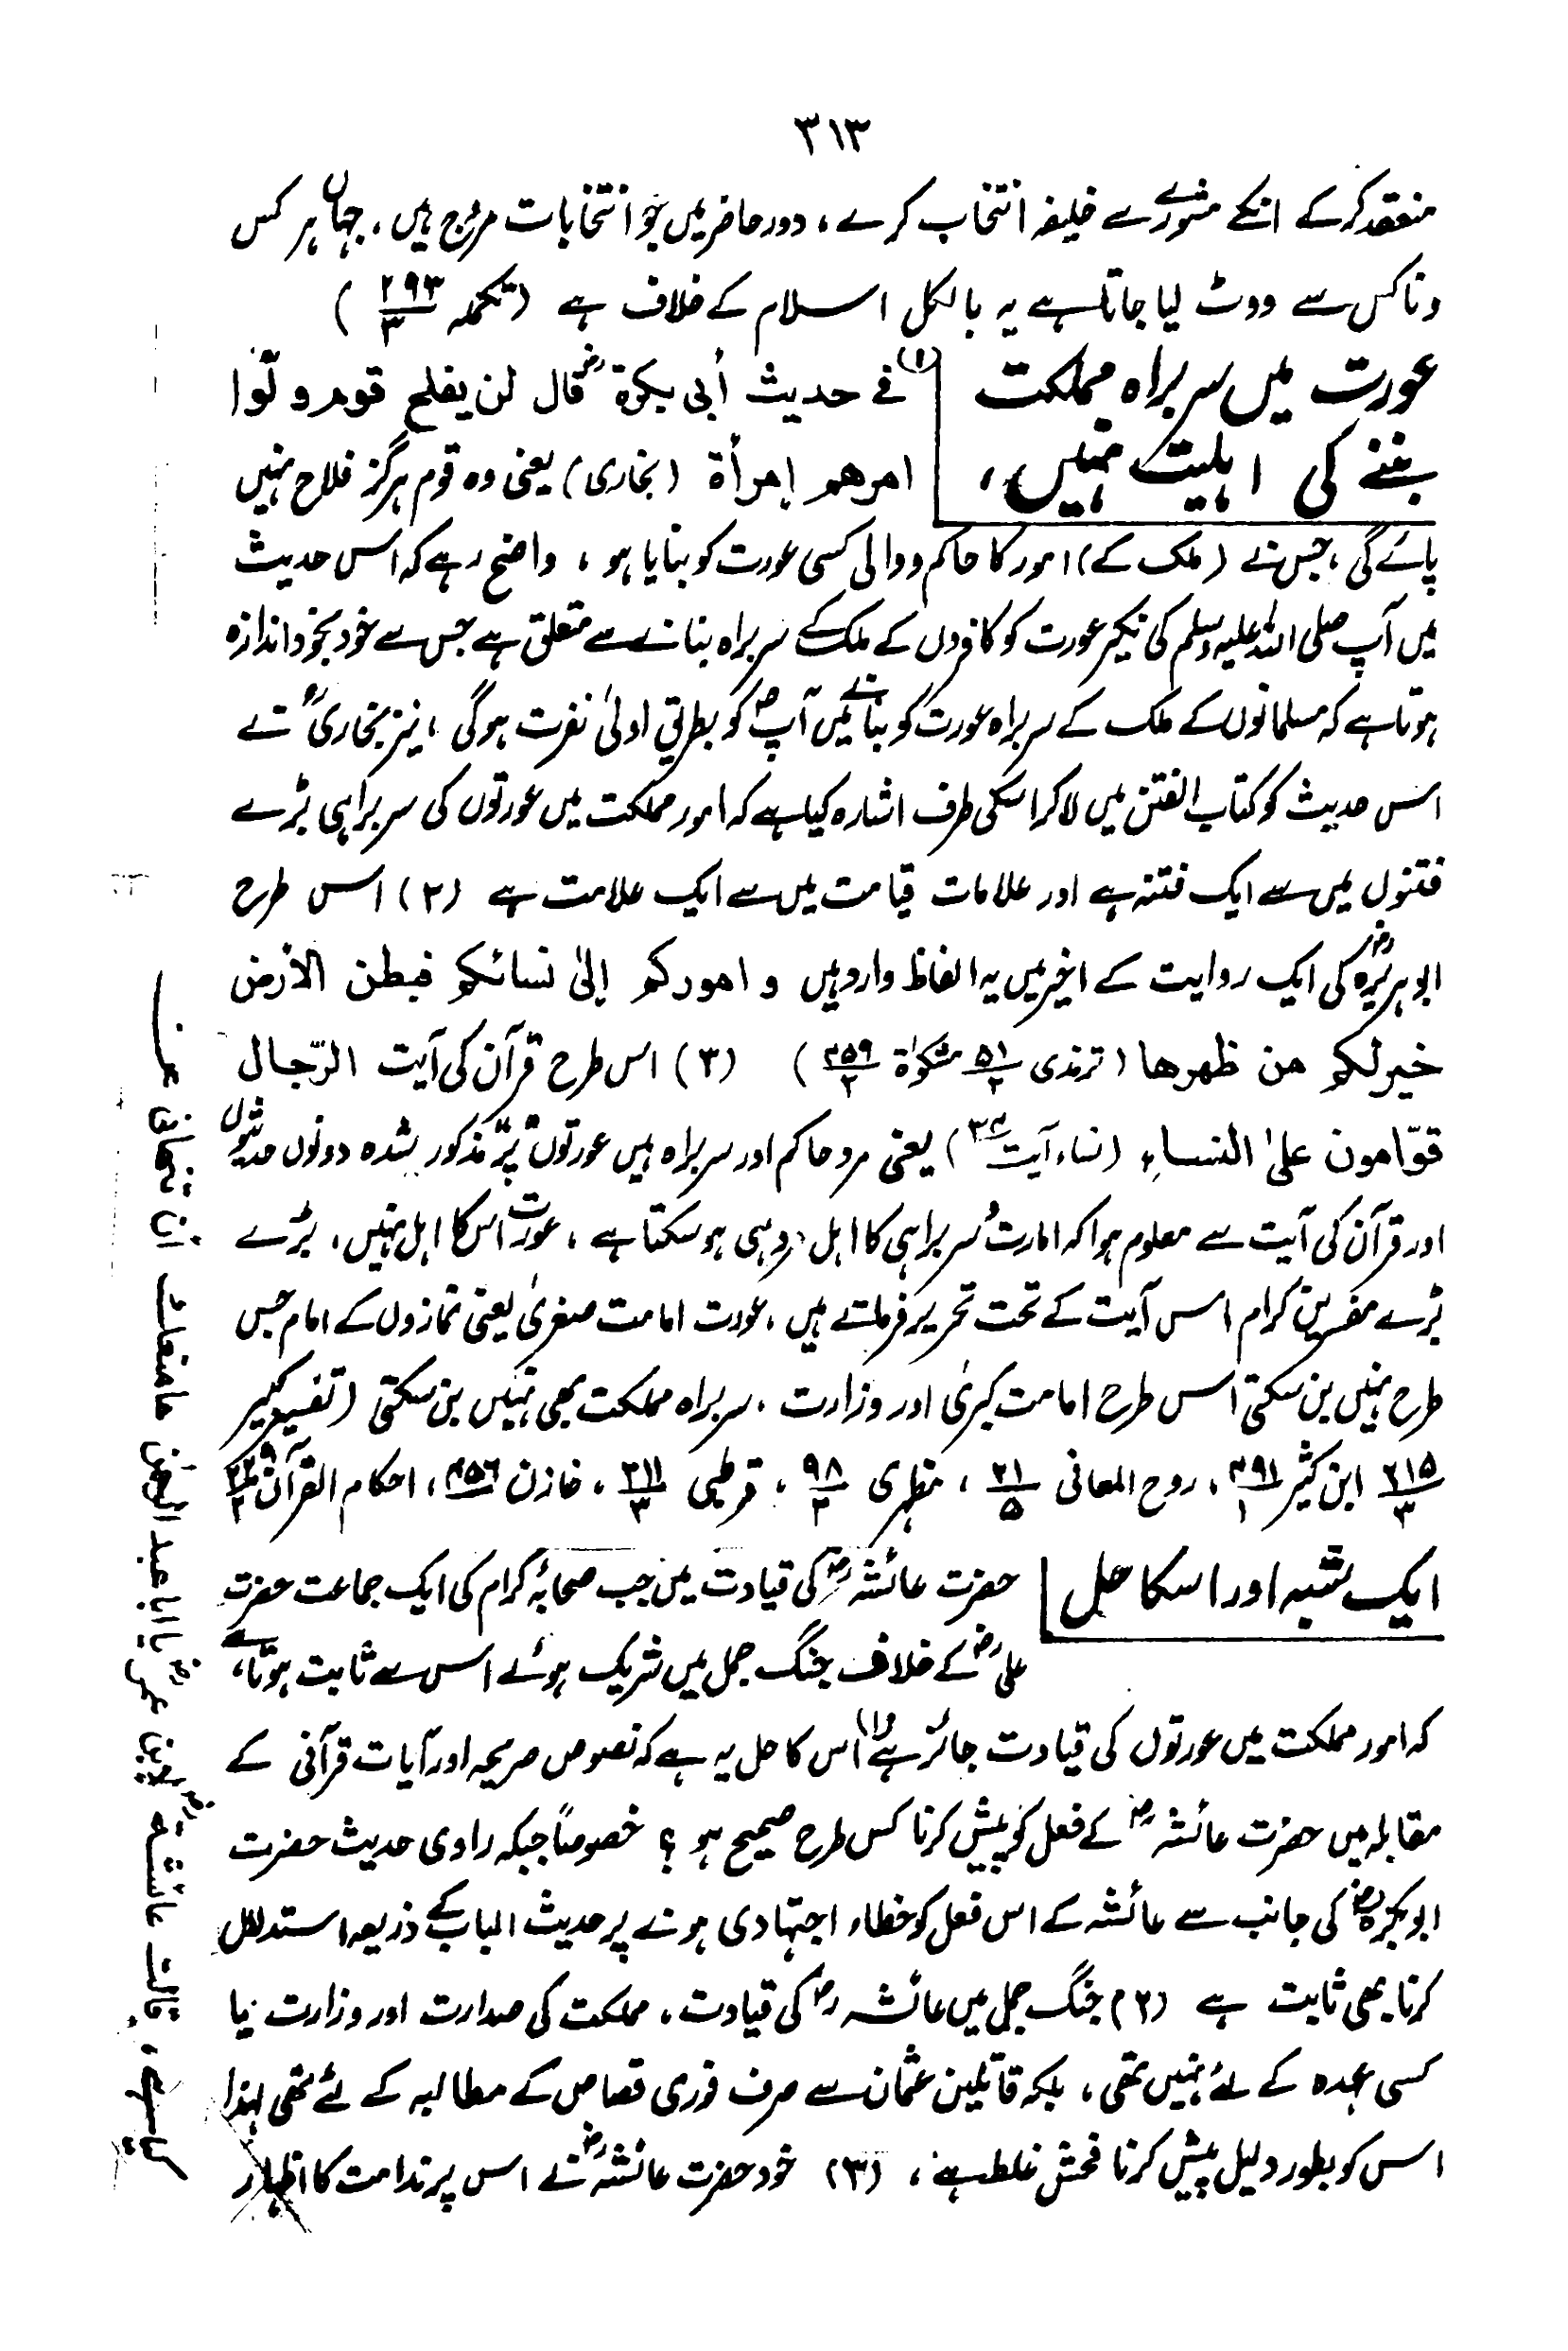 ۳۱۳
منعقد کرکے انکے مشورے سے خلیفہ انتخاب کرے، دور حاضر میں جو انتخابات مروج ہیں، جہاں ہر کس
وناکس سے ووٹ لیا جاتا ہے یہ بالکل اسلام کے خلاف ہے (تکملہ ۲۹۳/۳)
عورت میں سربراہ مملکت
بننے کی اہلیت نہیں،
(۱) فے حدیث أبی بکرۃؓ قال لن یفلح قوم ولّوا
امرھم إمرأۃ (بخاری) یعنی وہ قوم ہرگز فلاح نہیں
پائے گی، جس نے (ملک کے) امور کا حاکم ووالی کسی عورت کو بنایا ہو، واضح رہے کہ اس حدیث
میں آپ صلی اللہ علیہ وسلم کی نکیر عورت کو کافروں کے ملک کے سربراہ بنانے سے متعلق ہے جس سے خود بخود اندازہ
ہوتا ہے کہ مسلمانوں کے ملک کے سربراہ عورت کو بنانے میں آپؐ کو بطریق اولیٰ نفرت ہوگی، نیز بخاریؒ نے
اس حدیث کو کتاب الفتن میں لاکر اسکی طرف اشارہ کیا ہے کہ امور مملکت میں عورتوں کی سربراہی بڑے
فتنوں میں سے ایک فتنہ ہے اور علامات قیامت میں سے ایک علامت ہے (۲) اس طرح
ابوہریرہؓ کی ایک روایت کے اخیر میں یہ الفاظ وارد ہیں و امورکم إلیٰ نسائکم فبطن الأرض
خیرلکم من ظھرھا (ترمذی ۵۱/۲ مشکوٰۃ ۴۵۹/۲) (۳) اس طرح قرآن کی آیت الرّجال
قوّامون علیٰ النساءِ (نساء، آیت ۳۴) یعنی مرد حاکم اور سربراہ ہیں عورتوں پر، مذکور شدہ دونوں حدیثوں
اور قرآن کی آیت سے معلوم ہوا کہ امارت و سربراہی کا اہل مرد ہی ہوسکتا ہے، عورت اس کا اہل نہیں، بڑے
بڑے مفسرین کرام اس آیت کے تحت تحریر فرماتے ہیں، عورت امامت صغریٰ یعنی نمازوں کے امام جس
طرح نہیں بن سکتی اس طرح امامت کبریٰ اور وزارت، سربراہ مملکت بھی نہیں بن سکتی (تفسیر کبیر
۳۱۵/۳ ابن کثیر ۴۹۱/۱، روح المعانی ۲۱/۵، مظہری ۹۸/۲، قرطبی ۳۱۱/۳، خازن ۴۵۶، احکام القرآن
ایک شبہ اور اسکا حل
حضرت عائشہؓ کی قیادت میں جب صحابۂ کرام کی ایک جماعت حضرت
علیؓ کے خلاف جنگ جمل میں شریک ہوئے اس سے ثابت ہوتا ہے،
کہ امور مملکت میں عورتوں کی قیادت جائز ہے (۱) اس کا حل یہ ہے کہ نصوص صریحہ اور آیات قرآنی کے
مقابلہ میں حضرت عائشہؓ کے فعل کو پیش کرنا کس طرح صحیح ہو ؟ خصوصاً جبکہ راوی حدیث حضرت
ابوبکرہؓ کی جانب سے عائشہ کے اس فعل کو خطاء اجتہادی ہونے پر حدیث الباب کے ذریعہ استدلال
کرنا بھی ثابت ہے (۲) جنگ جمل میں عائشہؓ کی قیادت، مملکت کی صدارت اور وزارت یا
کسی عہدہ کے لئے نہیں تھی، بلکہ قاتلین عثمان سے صرف فوری قصاص کے مطالبہ کے لئے تھی لہذا
اس کو بطور دلیل پیش کرنا فحش غلط ہے، (۳) خود حضرت عائشہؓ نے اس پر ندامت کا اظہار
قالت عائشۃؓ لابن عمرؓ یا أبا عبد الرحمٰن مامنعک أن تنھانی عن